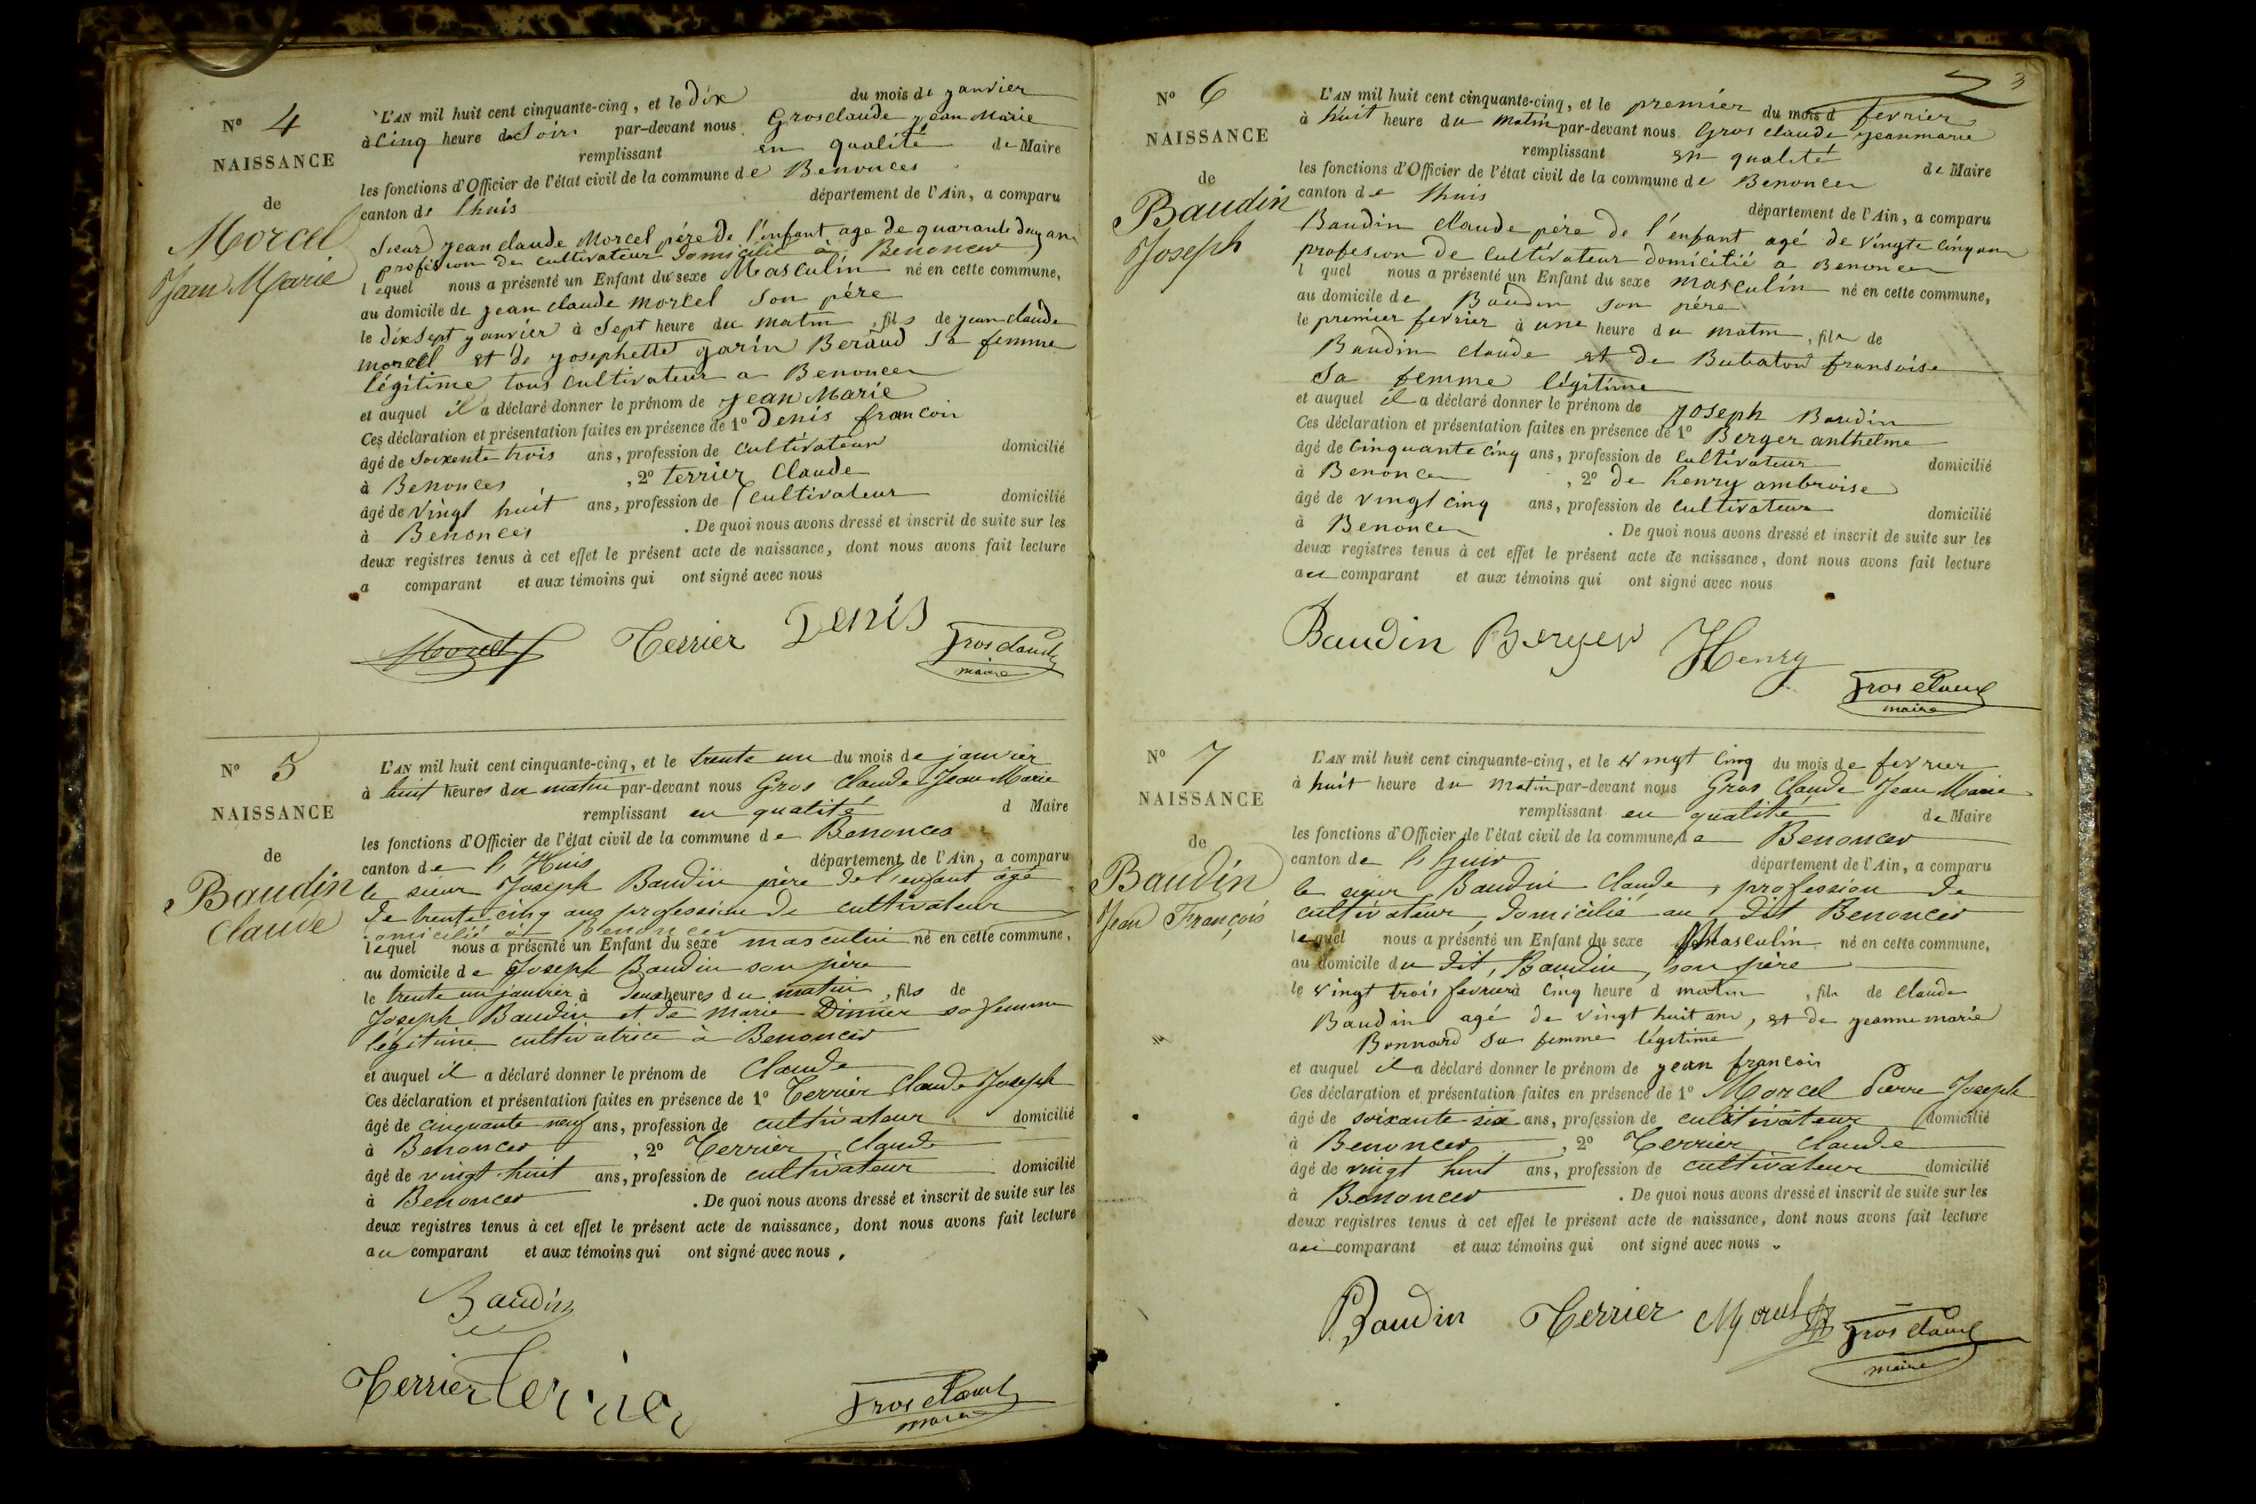 N° 4
NAISSANCE
de
Morcel
Jean Marie
L'AN mil huit cent cinquante-cinq, et le dix du mois de janvier
à cinq heure du Soir par-devant nous Grosclaude jean Marie
remplissant en qualité de Maire
les fonctions d'Officier de l'état civil de la commune de Benonces
canton de lhuis département de l'Ain, a comparu
Sieur jean claude Morcel pére De l'enfant age de quarante
profession de cultivateur Domicilié à Benonces
lequel nous a présenté un Enfant du sexe Masculin né en cette commune,
au domicile de jean claude morcel son pére
le dix Sept janvier à Sept heure du matin, fils de jean claude
morcel et de josephette garin Beraud sa femme
légitime tous cultivateur a Benonces
et auquel il a déclaré donner le prénom de jean Marie
Ces déclaration et présentation faites en présence de 1° Denis francois
âgé de Soixente trois ans, profession de cultivateur domicilié
à Benonces, 2° terrier Claude
âgé de vingt huit ans, profession de cultivateur domicilié
à Benonces. De quoi nous avons dressé et inscrit de suite sur les
deux registres tenus à cet effet le présent acte de naissance, dont nous avons fait lecture
a comparant et aux témoins qui ont signé avec nous
Morcel Terrier Denis Gros claude
maire
N° 5
NAISSANCE
de
Baudin
Claude
L'AN mil huit cent cinquante-cinq, et le trente un du mois de janvier
à huit heures du matin par-devant nous Gros Claude Jean Marie
remplissant en qualité d Maire
les fonctions d'Officier de l'état civil de la commune de Benonces
canton de l'Huis département de l'Ain, a comparu
le sieur Joseph Baudin père de l'enfant âgé
de trente cinq ans profession de cultivateur
domicilié à Benonces
lequel nous a présenté un Enfant du sexe masculin né en cette commune,
au domicile de Joseph Baudin son père
le trente un janvier à deux heures du matin, fils de
Joseph Baudin et de Marie Dimier sa femme
légitime cultivatrice à Benonces
et auquel il a déclaré donner le prénom de Claude
Ces déclaration et présentation faites en présence de 1° Terrier Claude Joseph
âgé de cinquante neuf ans, profession de cultivateur domicilié
à Benonces, 2° Terrier Claude
âgé de vingt-huit ans, profession de cultivateur domicilié
à Benonces. De quoi nous avons dressé et inscrit de suite sur les
deux registres tenus à cet effet le présent acte de naissance, dont nous avons fait lecture
au comparant et aux témoins qui ont signé avec nous.
Baudin
Terrier Terrier Gros claude
maire
3
N° 6
NAISSANCE
de
Baudin
Joseph
L'AN mil huit cent cinquante-cinq, et le premier du mois d fevrier
à huit heure du matin par-devant nous Gros claude jean marie
remplissant en qualité de Maire
les fonctions d'Officier de l'état civil de la commune de Benonces
canton de lhuis département de l'Ain, a comparu
Baudin Claude pére de l'enfant agé de vingte cinq ans
profesion de cultivateur domicilié a Benonces
l quel nous a présenté un Enfant du sexe masculin né en cette commune,
au domicile de Baudin son pére
le premier fevrier à une heure du matin, fils de
Baudin claude et de Bubaton fransoise
Sa femme légitime
et auquel il a déclaré donner le prénom de joseph Baudin
Ces déclaration et présentation faites en présence de 1° Berger anthelme
âgé de cinquante cinq ans, profession de cultivateur domicilié
à Benonces, 2° de henry ambroise
âgé de vingt cinq ans, profession de cultivateur domicilié
à Benonces. De quoi nous avons dressé et inscrit de suite sur les
deux registres tenus à cet effet le présent acte de naissance, dont nous avons fait lecture
au comparant et aux témoins qui ont signé avec nous
Baudin Berger Henry
Gros claude
maire
N° 7
NAISSANCE
de
Baudin
Jean François
L'AN mil huit cent cinquante-cinq, et le vingt cinq du mois de fevrier
à huit heure du matin par-devant nous Gros Claude Jean Marie
remplissant en qualité de Maire
les fonctions d'Officier de l'état civil de la commune de Benonces
canton de l'huis département de l'Ain, a comparu
le sieur Baudin Claude, profession de
cultivateur, domicilié au dit Benonces
lequel nous a présenté un Enfant du sexe Masculin né en cette commune,
au domicile du dit, Baudin, son père
le vingt trois fevrier à cinq heure d matin, fils de claude
Baudin agé de vingt huit ans, et de jeanne marie
Bonnard sa femme légitime
et auquel il a déclaré donner le prénom de jean francois
Ces déclaration et présentation faites en présence de 1° Morcel Pierre Joseph
âgé de soixante six ans, profession de cultivateur domicilié
à Benonces, 2° Terrier Claude
âgé de vingt huit ans, profession de cultivateur domicilié
à Benonces. De quoi nous avons dressé et inscrit de suite sur les
deux registres tenus à cet effet le présent acte de naissance, dont nous avons fait lecture
au comparant et aux témoins qui ont signé avec nous.
Baudin Terrier Morcel Gros claude
maire